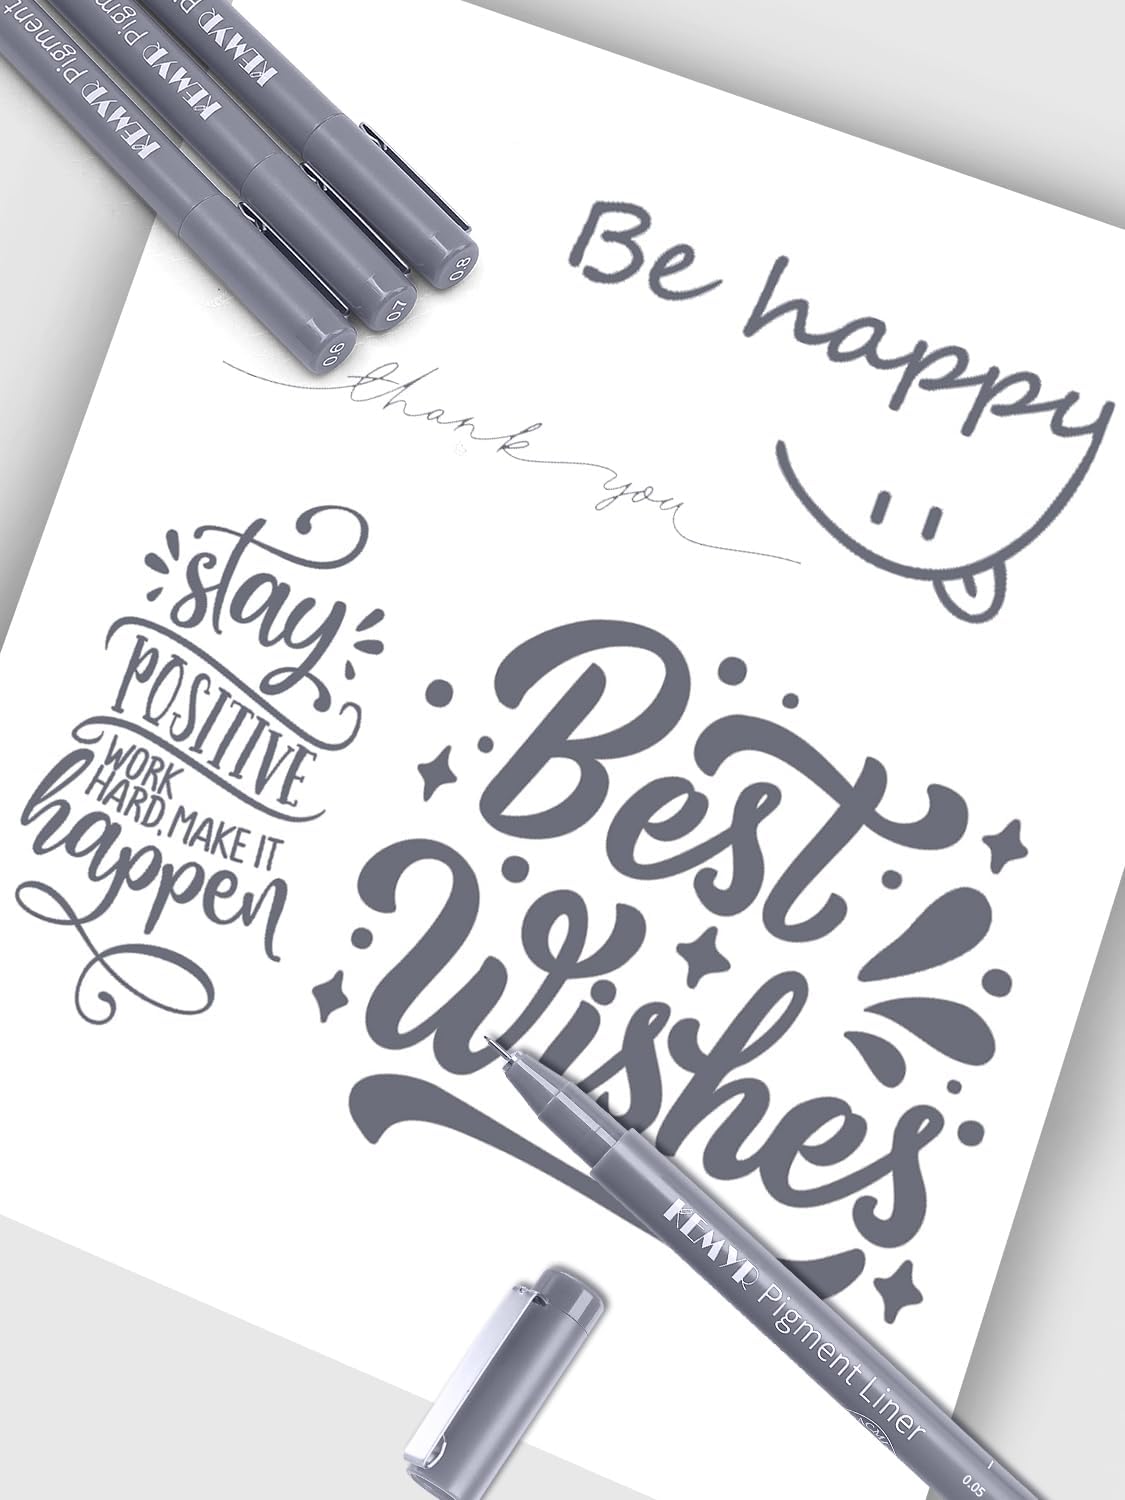 KEMYR Pigment
KEMYR Pigm
KEMYR Pi
0.8
0.7
0.6
Be happy
thank you
stay
POSITIVE
WORK
HARD, MAKE IT
happen
Best
Wishes
KEMYR Pigment Liner
0.05